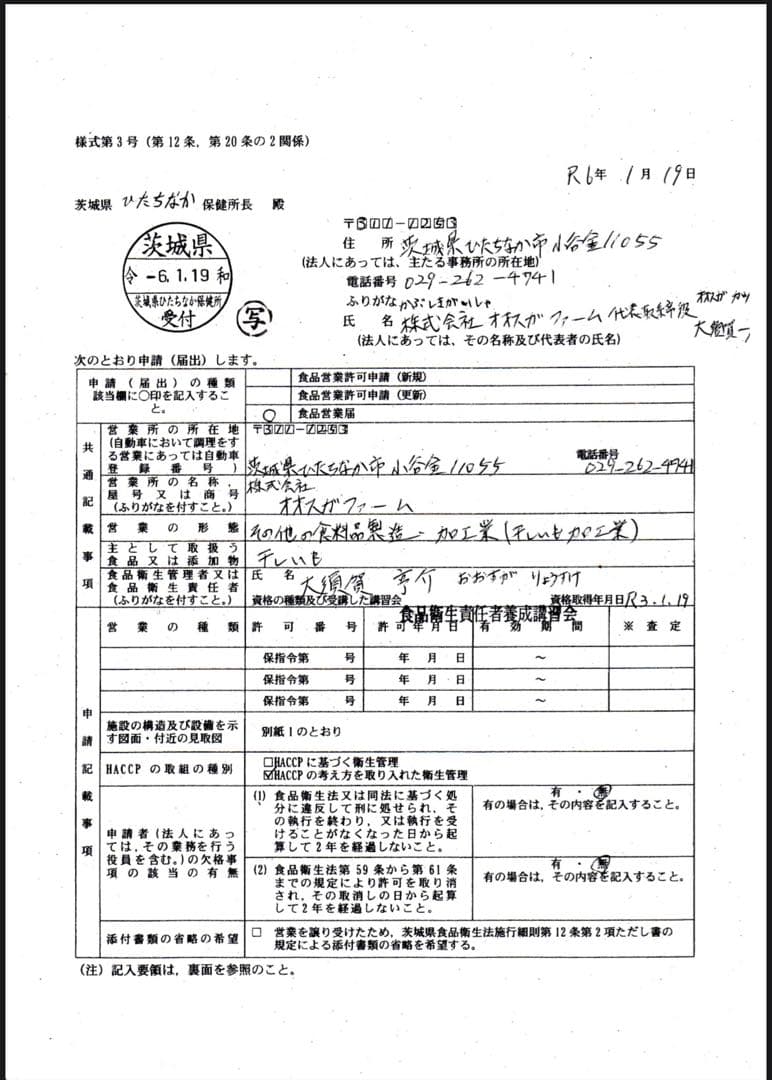 様式第3号（第12条，第20条の2関係）
R6年 1月 19日
茨城県 ひたちなか 保健所長 殿
茨城県
令 -6.1.19 和
茨城県ひたちなか保健所
受付
写
〒311-1253
住 所 茨城県ひたちなか市小谷金11055
(法人にあっては、主たる事務所の所在地)
電話番号 029-262-4741
ふりがな かぶしきがいしゃ
氏 名 株式会社 オオスガファーム 代表取締役
(法人にあっては、その名称及び代表者の氏名)
次のとおり申請（届出）します。
申請（届出）の種類
該当欄に○印を記入するこ
と。
食品営業許可申請（新規）
食品営業許可申請（更新）
○ 食品営業届
共通記載事項
営業所の所在地
(自動車において調理をす
る営業にあっては自動車
登録番号)
〒311-1253
茨城県ひたちなか市小谷金11055
電話番号
029-262-4741
営業所の名称，
屋号又は商号
(ふりがなを付すこと。)
株式会社
オオスガファーム
営業の形態
その他の食料品製造・加工業(干しいも加工業)
主として取扱う
食品又は添加物
干しいも
食品衛生管理者又は
食品衛生責任者
(ふりがなを付すこと。)
氏 名 大須賀 亨介 おおすが りょうすけ
資格の種類及び受講した講習会
食品衛生責任者養成講習会
資格取得年月日 R3.1.19
申請記載事項
営業の種類 許可番号 許可年月日 有効期間 ※査定
保指令第 号 年 月 日 ～
保指令第 号 年 月 日 ～
保指令第 号 年 月 日 ～
施設の構造及び設備を示
す図面・付近の見取図
別紙1のとおり
HACCPの取組の種別
□HACCPに基づく衛生管理
☑HACCPの考え方を取り入れた衛生管理
申請者（法人にあっ
ては，その業務を行う
役員を含む。）の欠格事
項の該当の有無
(1) 食品衛生法又は同法に基づく処
分に違反して刑に処せられ，そ
の執行を終わり，又は執行を受
けることがなくなった日から起
算して2年を経過しないこと。
有・無
有の場合は，その内容を記入すること。
(2) 食品衛生法第59条から第61条
までの規定により許可を取り消
され，その取消しの日から起算
して2年を経過しないこと。
有・無
有の場合は，その内容を記入すること。
添付書類の省略の希望
□ 営業を譲り受けたため，茨城県食品衛生法施行細則第12条第2項ただし書の
規定による添付書類の省略を希望する。
(注) 記入要領は，裏面を参照のこと。